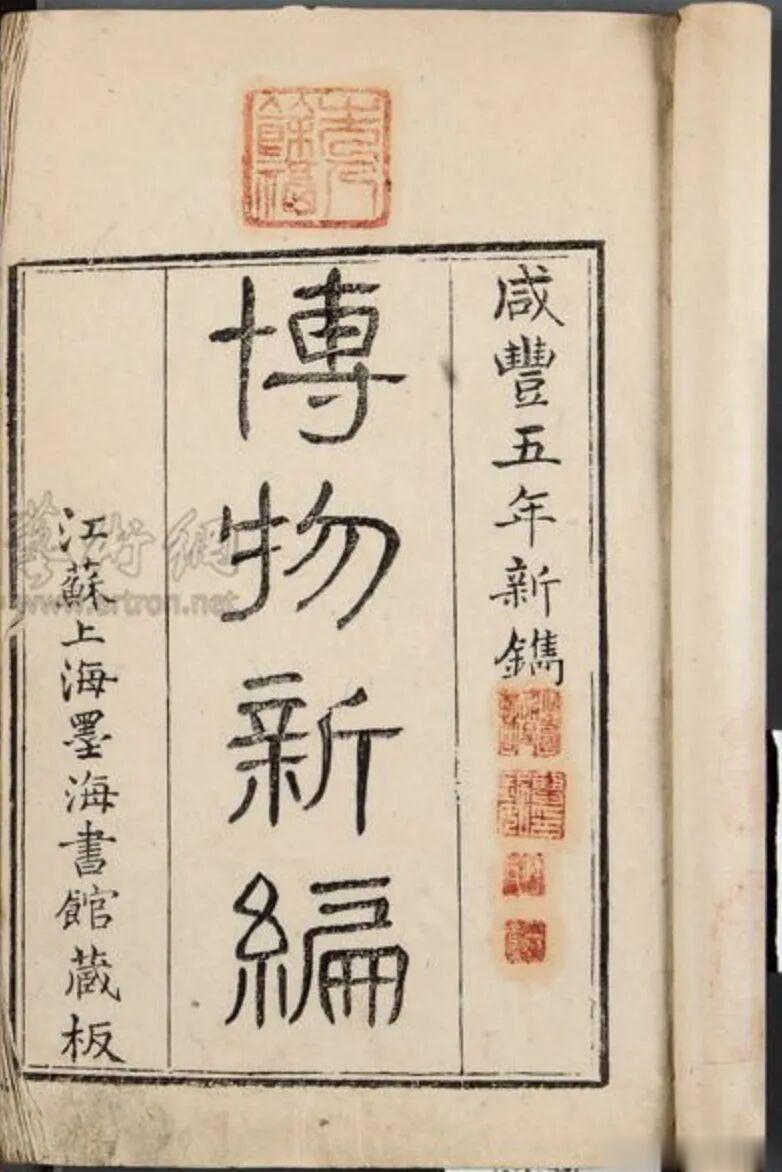 咸豐五年新鐫
博物新編
江蘇上海墨海書館藏板
藝術網
www.artron.net